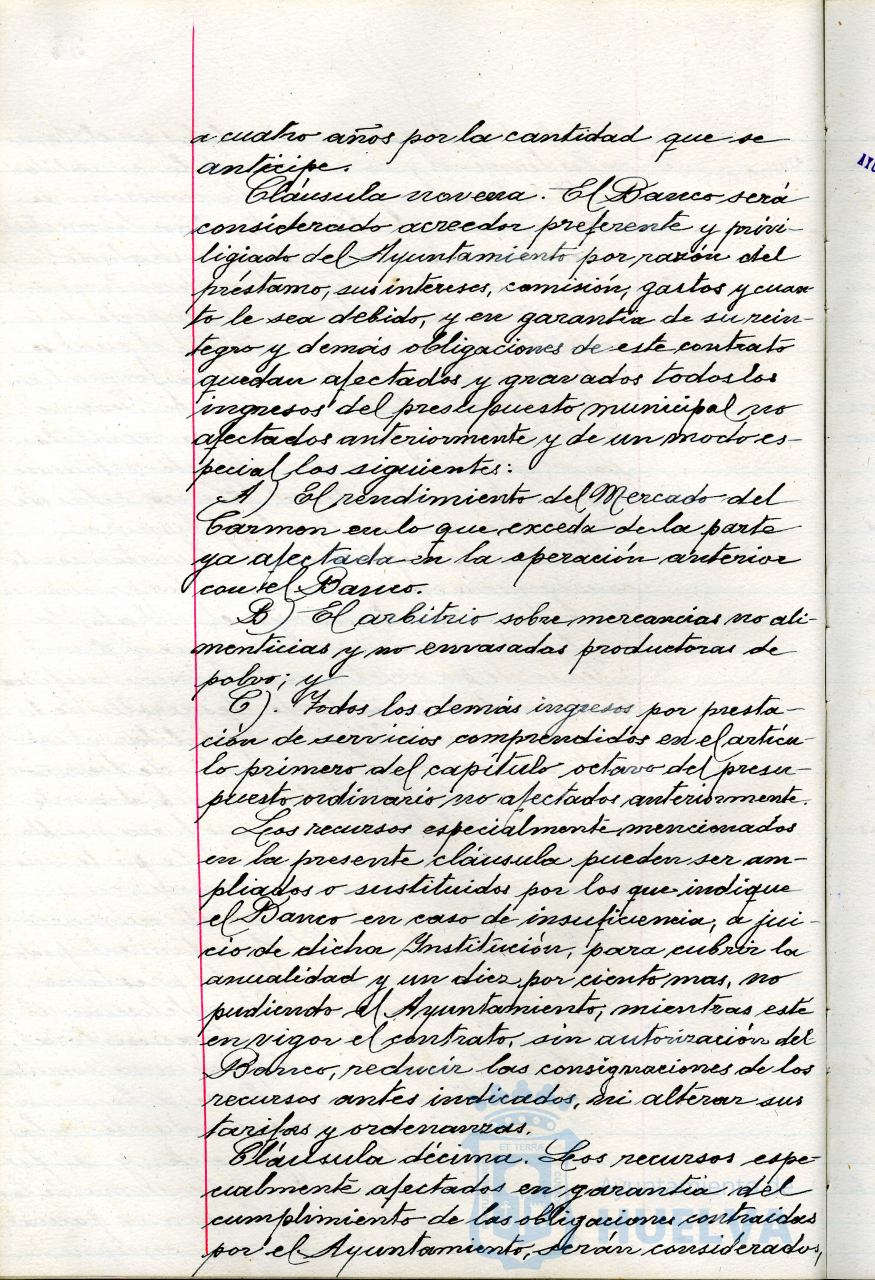 a cuatro años por la cantidad que se
anticipe.
Cláusula novena. El Banco será
considerado acreedor preferente y privi-
ligiado del Ayuntamiento por razón del
préstamo, sus intereses, comisión, gastos y cuan-
to le sea debido, y en garantía de su rein-
tegro y demás obligaciones de este contrato
quedan afectados y gravados todos los
ingresos del presupuesto municipal no
afectados anteriormente y de un modo es-
pecial los siguientes:
A) El rendimiento del Mercado del
Carmen en lo que exceda de la parte
ya afectada en la operación anterior
con el Banco.
B) El arbitrio sobre mercancias no ali-
menticias y no envasadas productoras de
polvo; y
C). Todos los demás ingresos por presta-
ción de servicios comprendidos en el artícu-
lo primero del capítulo octavo del presu-
puesto ordinario no afectados anteriormente.
Los recursos especialmente mencionados
en la presente cláusula pueden ser am-
pliados o sustituidos por los que indique
el Banco en caso de insuficiencia, a jui-
cio de dicha Institución, para cubrir la
anualidad y un diez por ciento mas, no
pudiendo el Ayuntamiento, mientras esté
en vigor el contrato, sin autorización del
Banco, reducir las consignaciones de los
recursos antes indicados, ni alterar sus
tarifas y ordenanzas.
Cláusula décima. Los recursos espe-
cialmente afectados en garantía del
cumplimiento de las obligaciones contraidas
por el Ayuntamiento, serán considerados,
Ayuntamiento de
HUELVA